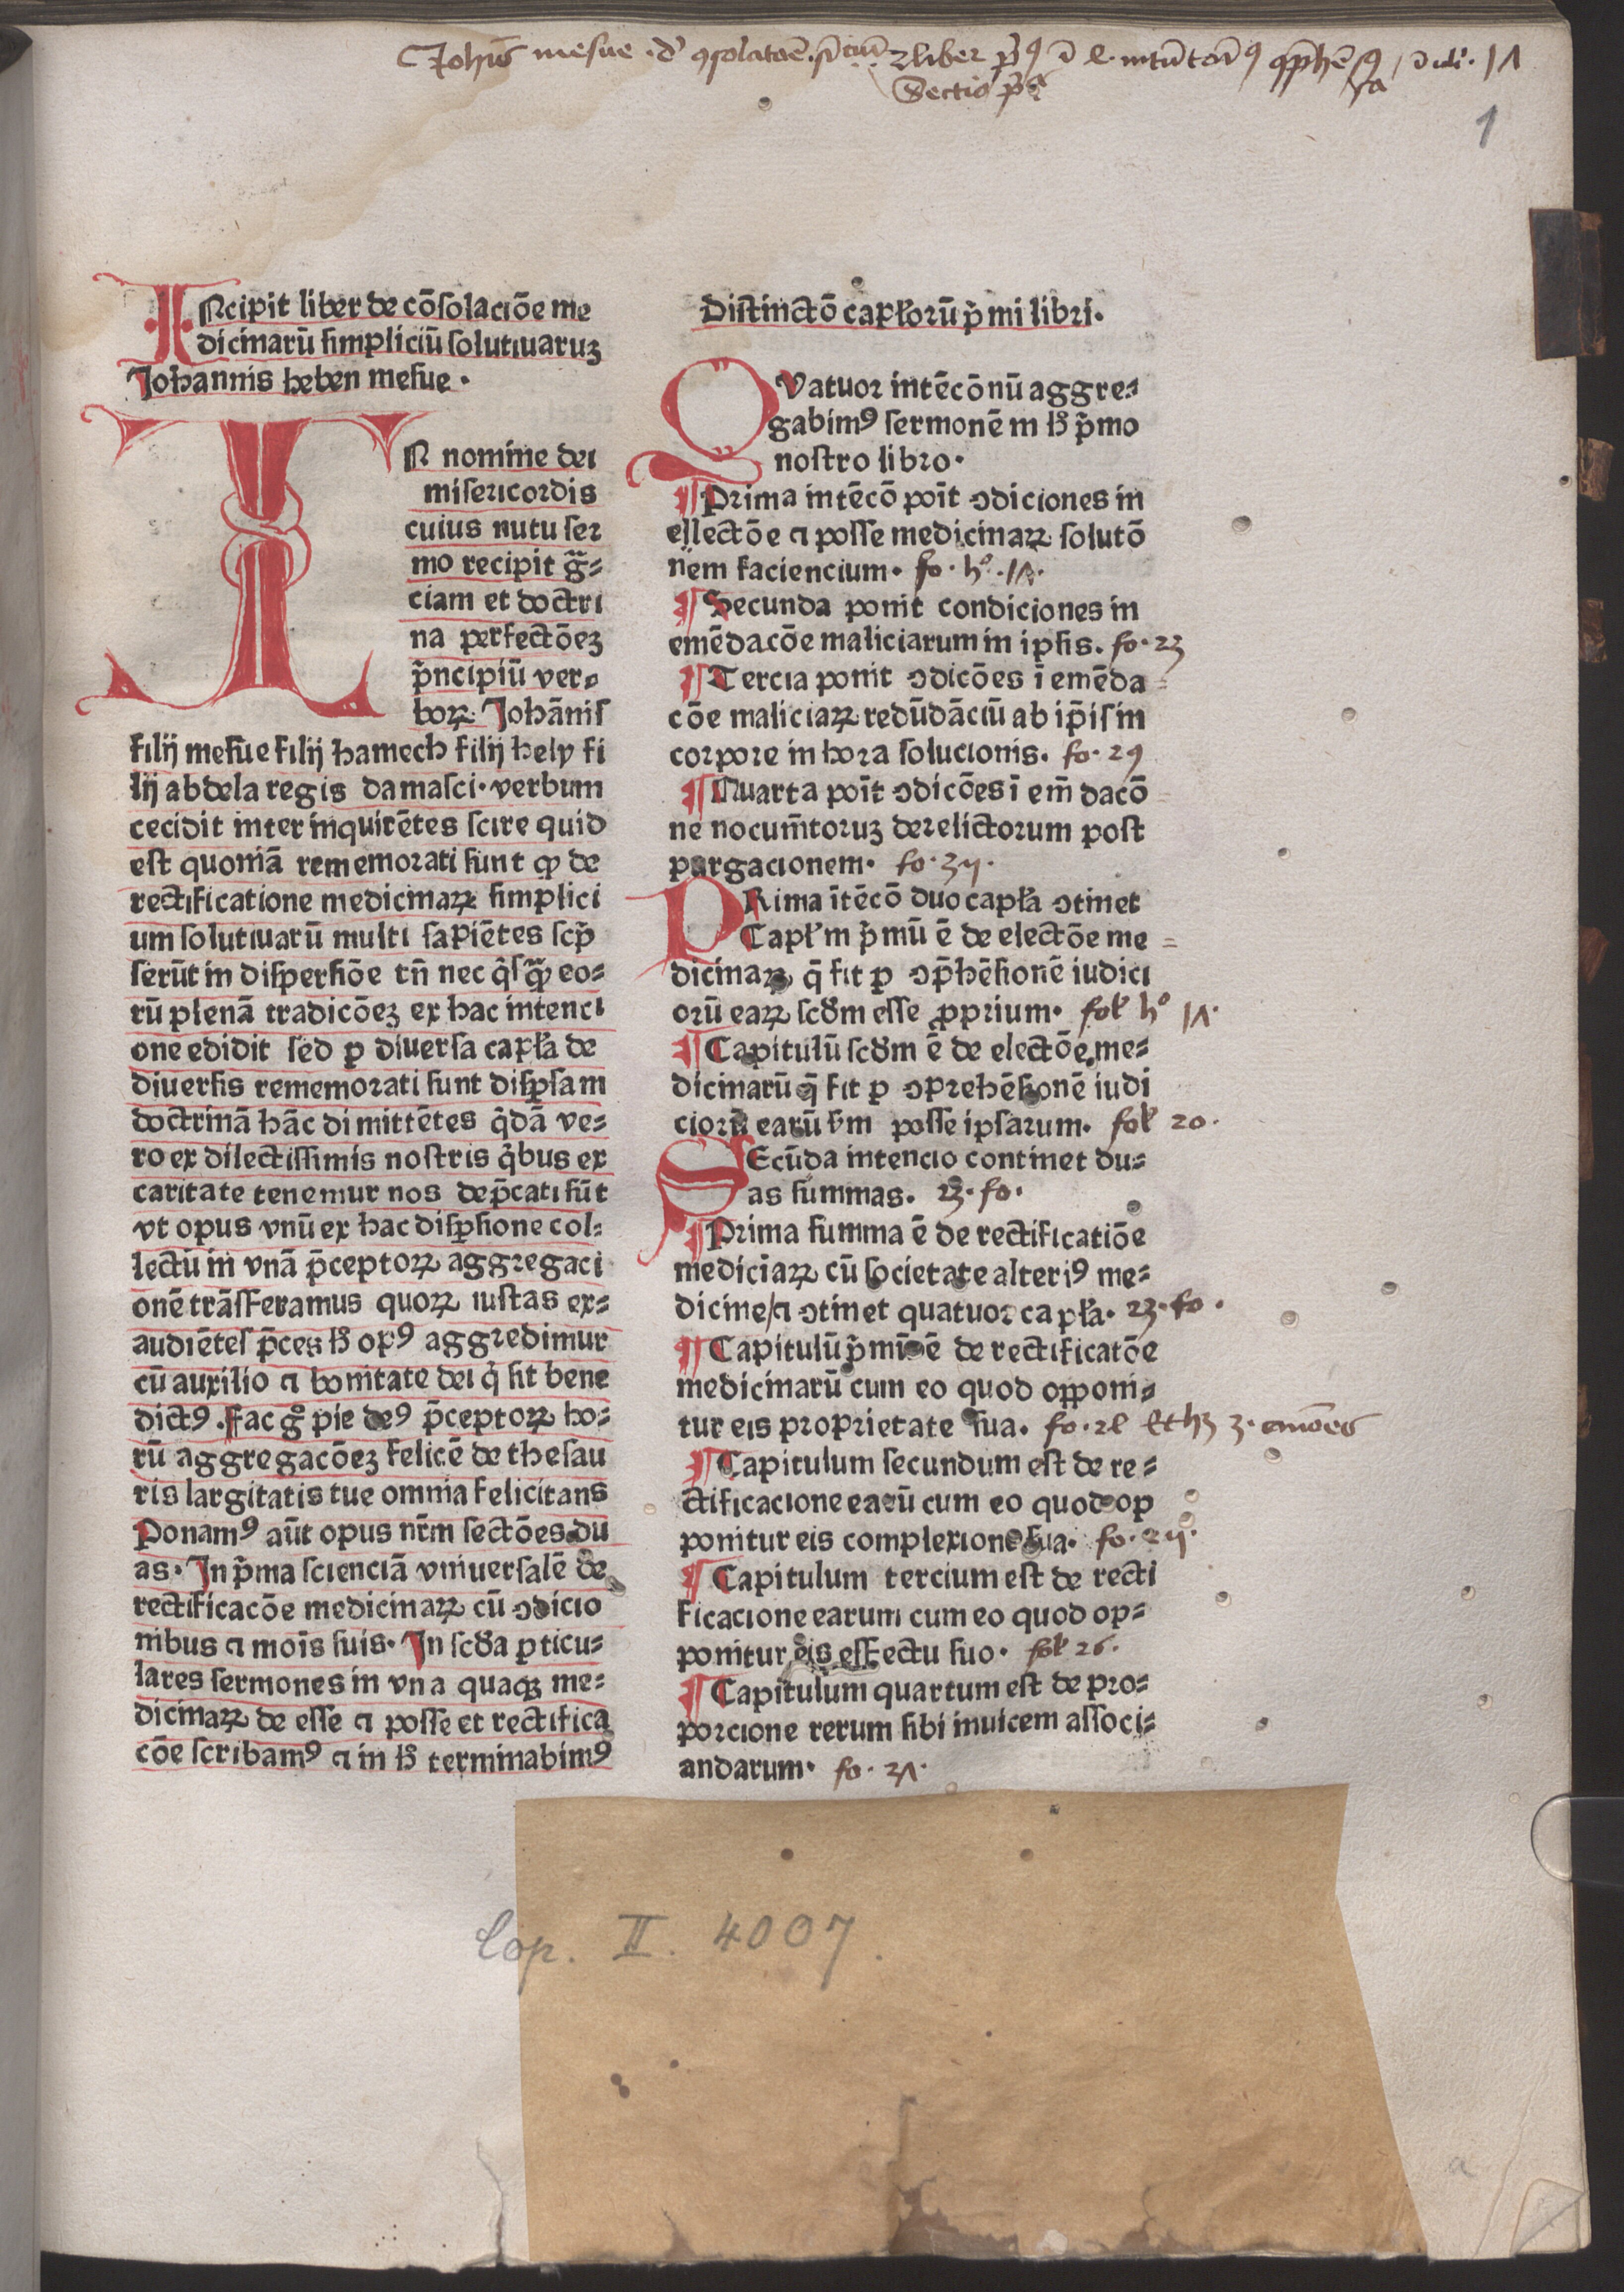 Johis mesue
Sectio pa
1
INcipit liber de cōsolaciōe me
dicinarū simpliciū solutiuaruꝫ
Johannis heben mesue.
IN nomine dei
misericordis
cuius nutu ser
mo recipit gr̄⸗
ciam et doctri
na perfectōeꝫ
p̄ncipiū ver⸗
borꝝ. Johānis
filij mesue filij hamech filij hely fi
lij abdela regis damasci. verbum
cecidit inter inquirētes scire quid
est quoniā rememorati sunt ꝙ de
rectificatione medicinarꝝ simplici
um solutiuarū multi sapiētes scp̄
serūt in dispersiōe tn̄ nec q̇sꝙ̄ eo⸗
rū plenā tradicōeꝫ ex hac intenci
one edidit sed ꝑ diuersa capl̄a de
diuersis rememorati sunt disꝑsam
doctrinā hāc dimittētes q̇dā ve⸗
ro ex dilectissimis nostris q̇bus ex
caritate tenemur nos dep̄cati sūt
vt opus vnū ex hac disꝑsione col⸗
lectū in vnā p̄ceptorꝝ aggregaci
onē trāsferamus quorꝝ iustas ex⸗
audiētes p̄ces h̄ opꝰ aggredimur
cū auxilio ⁊ bonitate dei q̇ sit bene
dictꝰ. Fac gͦ pie deꝰ p̄ceptorꝝ ho⸗
rū aggregacōeꝫ felicē de thesau
ris largitatis tue omnia felicitans
Ponamꝰ aūt opus nr̄m sectōes du
as. In p̄ma scienciā vniuersalē de
rectificacōe medicinarꝝ cū ꝯdicio
nibus ⁊ mois̄ suis. In scd̄a ꝑticu⸗
lares sermones in vna quaqꝫ me⸗
dicinarꝝ de esse ⁊ posse et rectifica
cōe scribamꝰ ⁊ in h̄ terminabimꝰ
Distinctō capl̄orū p̄mi libri.
QVatuor intēcōnū aggre⸗
gabimꝰ sermonē in h̄ p̄mo
nostro libro.
¶Prima intēcō poīt ꝯdiciones in
ellectōe ⁊ posse medicinarꝝ solutō
nem faciencium. fo. hº. 1Λ.
¶Secunda ponit condiciones in
emēdacōe maliciarum in ipsis. fo. 23
¶Tercia ponit ꝯdicōes ī emēda⸗
cōe maliciarꝝ redūdāciū ab ip̄is in
corpore in hora solucionis. fo. 29
¶Quarta poīt ꝯdicōes ī em̄dacō⸗
ne nocum̄toruꝫ derelictorum post
purgacionem. fo. 3ij.
PRima ītēcō duo capl̄a ꝯtinet
Capl̄m p̄mū ē de electōe me⸗
dicinarꝝ q̄ fit ꝑ ꝯp̄hēsionē iudici
orū earꝝ scd̄m esse ꝓprium. fol hº 1Λ.
¶Capitulū scd̄m ē de electōe me⸗
dicinarū q̄ fit ꝑ ꝯprehēsionē iudi
ciorū earū s̄m posse ipsarum. fol 20.
SEcūda intencio continet du⸗
as summas. 23. fo.
¶Prima summa ē de rectificatiōe
mediciarꝝ cū societate alteriꝰ me⸗
dicine/⁊ ꝯtinet quatuor capl̄a. 23. fo.
¶Capitulū p̄mū ē de rectificatōe
medicinarū cum eo quod opponi⸗
tur eis proprietate sua. fo. 2
¶Capitulum secundum est de re⸗
ctificacione earū cum eo quod op
ponitur eis complexione sua. fo. 2ij.
¶Capitulum tercium est de recti
ficacione earum cum eo quod op⸗
ponitur eis effectu suo. fol 26.
¶Capitulum quartum est de pro⸗
porcione rerum sibi inuicem associ⸗
andarum. fo. 2Λ.
Cop. II. 4007.
a